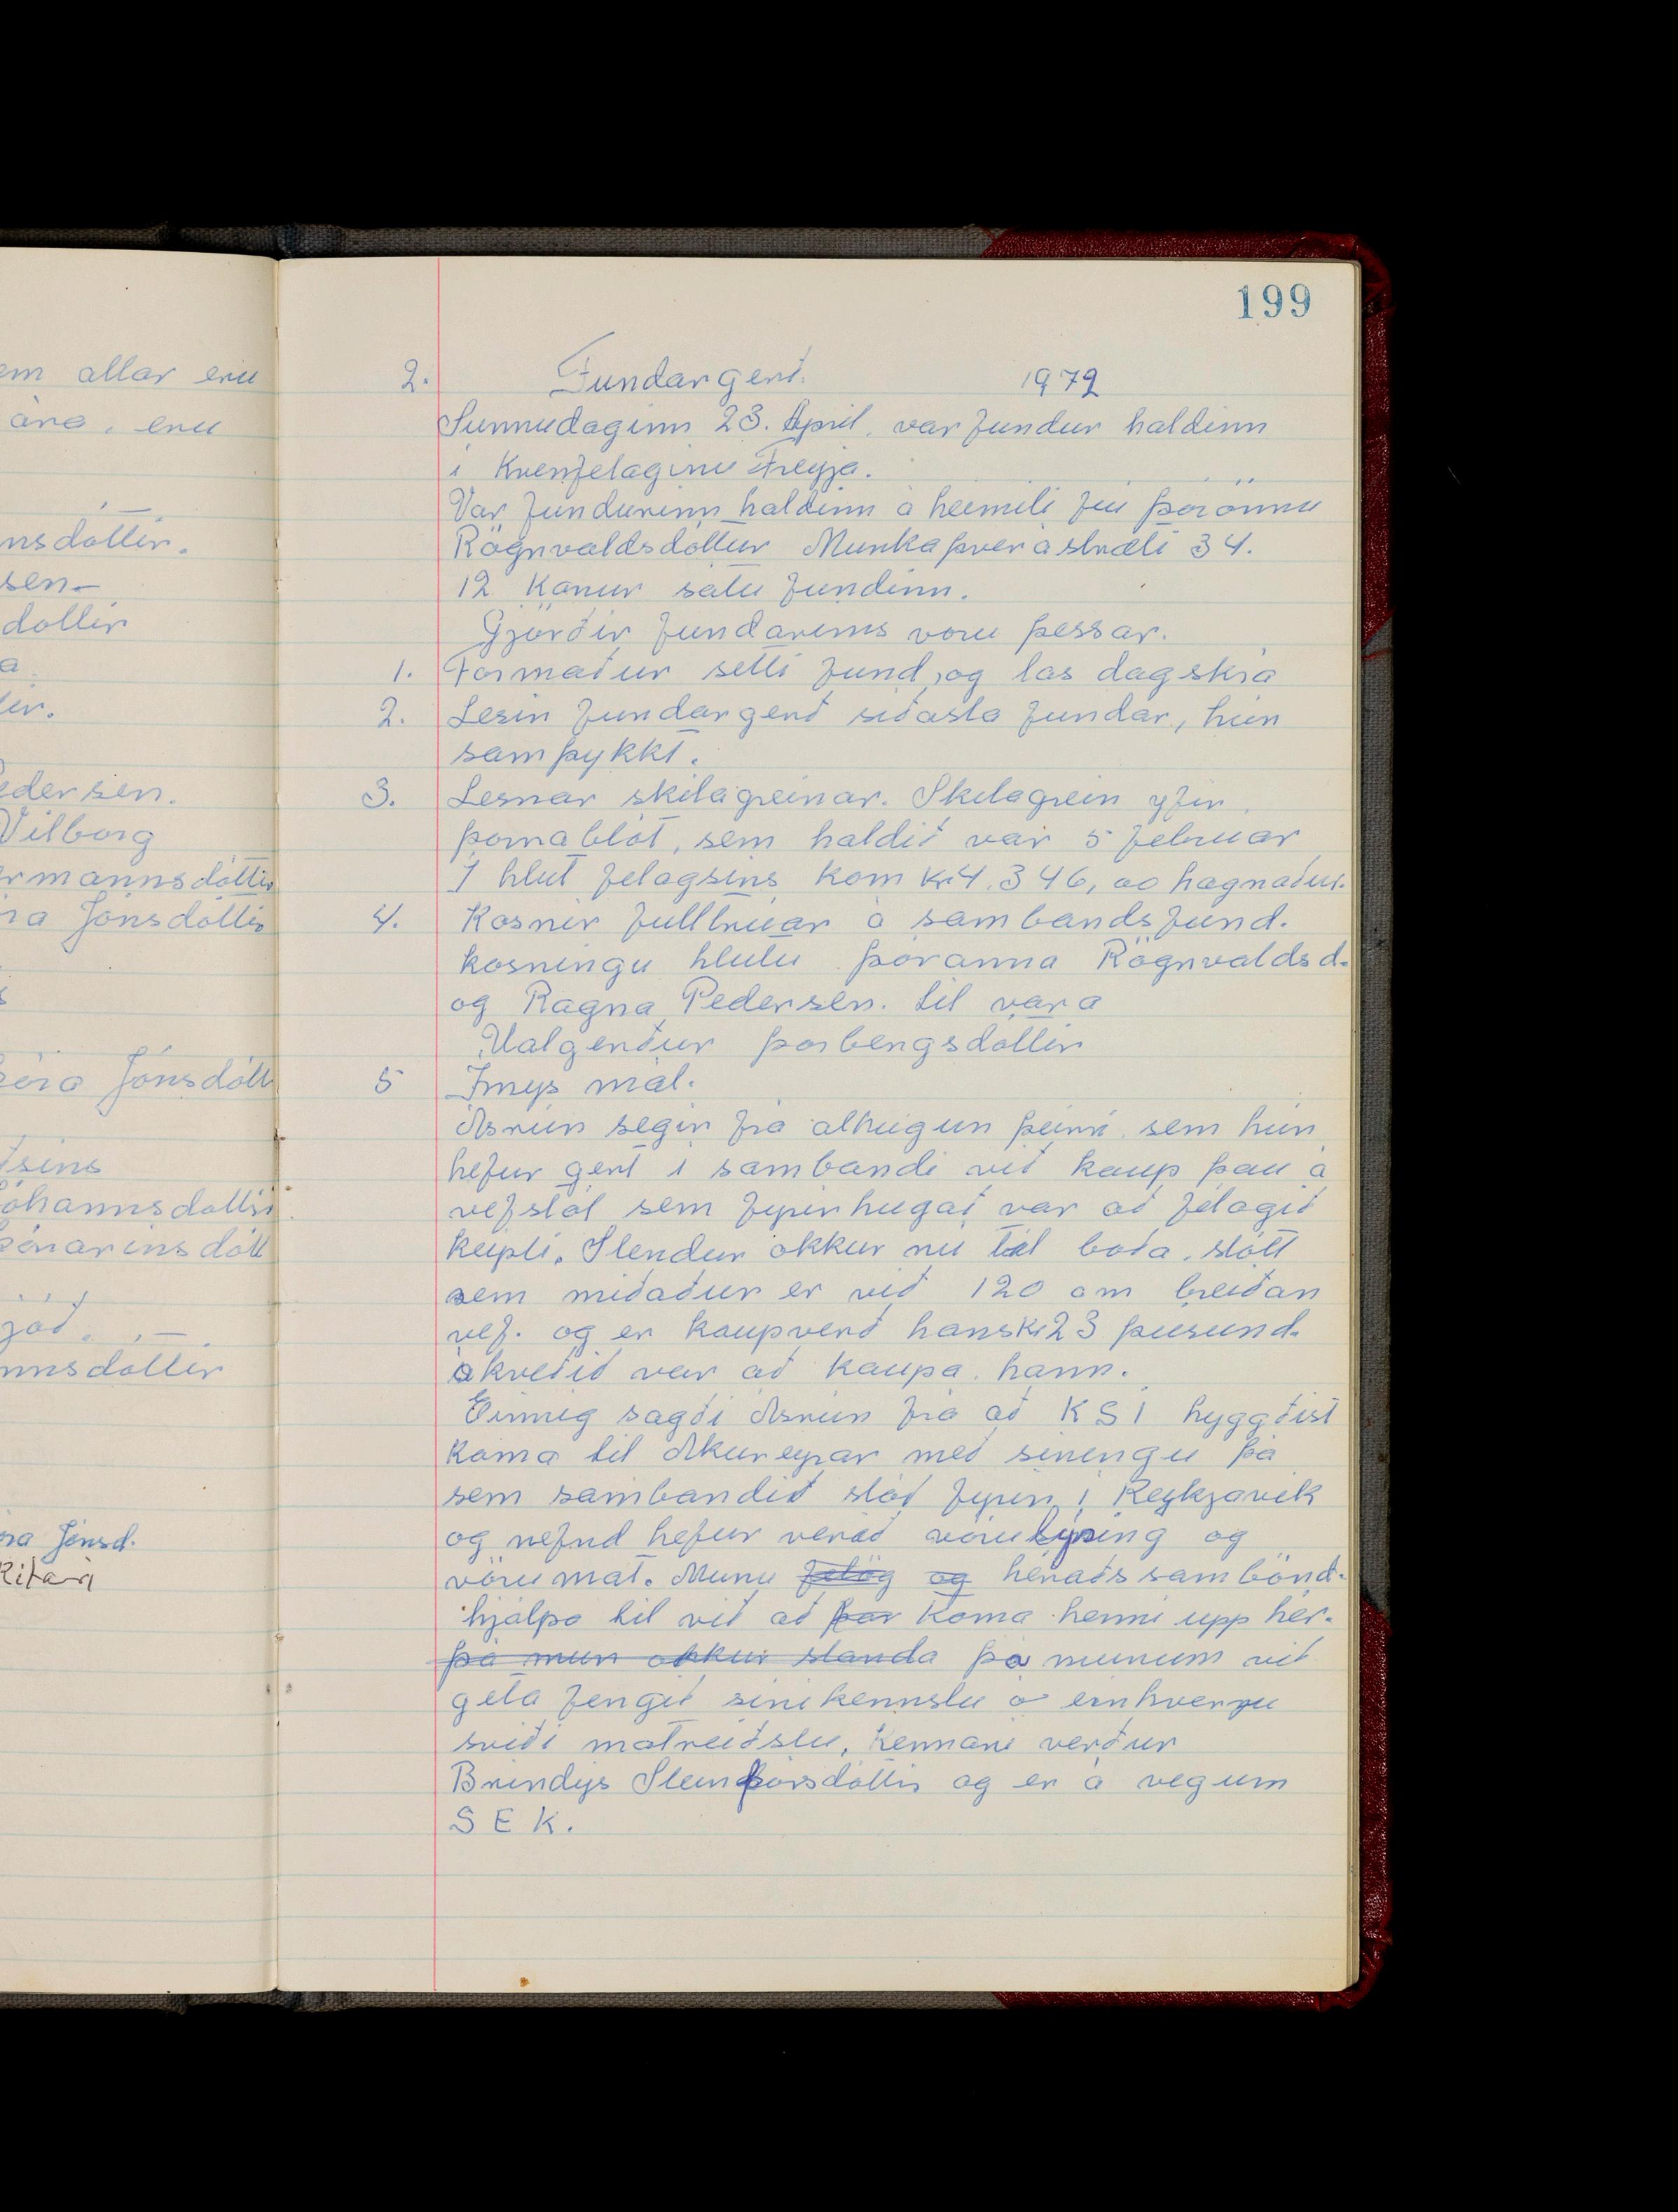 em allar eru
ára, eru
nsdóttir.
sen-
dóttir
a
ir.
edersen.
Vilborg
ermannsdóttir
ra Jónsdóttir
s
óra Jónsdótt
tsins
óhannsdóttir
Þórarinsdótt
jóð.
nnsdóttir
ra Jónsd.
Ritari
199
2. Fundargerð. 1972
Sunnudaginn 23. Apríl. var fundur haldinn
í Kvenfelaginu Freyja.
Var fundurinn haldinn á heimili frú Þórönnu
Rögnvaldsdóttur Munkaþverástræti 34.
12 Konur sátu fundinn.
Gjörðir fundarins voru þessar.
1. Formaður setti fund, og las dagskrá
2. Lesin fundargerð síðasta fundar, hún
samþykkt.
3. Lesnar skilagreinar. Skilagrein yfir
þorrablót, sem haldið var 5 februar
I hlut felagsins kom kr 4.346,00 hagnaður.
4. Kosnir fulltrúar á sambandsfund.
kosningu hlutu Þóranna Rögnvaldsd.
og Ragna Pedersen. til vara
Valgerður Þorbergsdóttir
5 Ímys mál.
Ásrún segir frá athugun þeirri sem hún
hefur gert í sambandi við kaup þau á
vefstól sem fyrirhugað var að félagið
keypti. Stendur okkur nú til boða. stóll
sem miðaður er við 120 cm breiðan
vef. og er kaupverð hans kr 23 þúsund.
ákveðið var að kaupa hann.
Einnig sagði Ásrún frá að K S Í hyggðist
koma til Akureyrar með síningu þá
sem sambandið stóð fyrir í Reykjavík
og nefnd hefur verið vörulýsing og
vörumat. Munu felög og héraðssambönd.
hjálpa til við að þar Koma henni upp hér.
þá mun okkur standa þá munum við
geta fengið sínikennslu á einhverju
sviði matreiðslu, Kennari verður
Bryndýs Steinþórsdóttir og er á vegum
S E K.